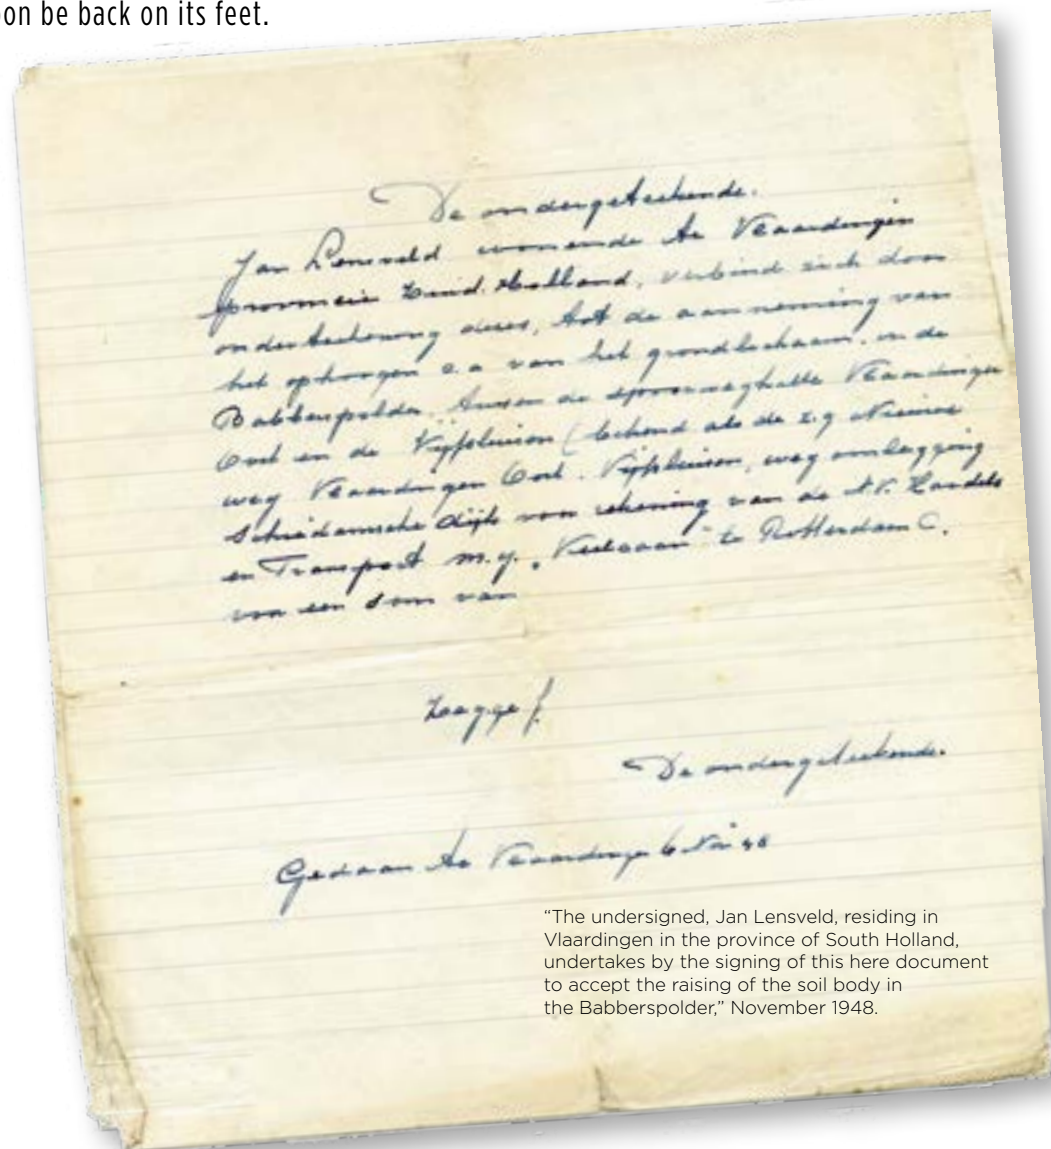 oon be back on its feet.
De ondergeteekende.
Jan Lensveld wonende te Vlaardingen
provincie Zuid-Holland, verbind zich door
onderteekening dezes, tot de aanneming van
het ophoogen e.a van het grondlichaam, in de
Babberspolder. tussen de spoorweghalte Vlaardingen
Oost en de Vijfsluizen (bekend als de z.g Nieuwe
weg Vlaardingen Oost. Vijfsluizen, weg omlegging
Schiedamsche dijk voor rekening van de N.V. Handels
en Transport m.y. te Rotterdam C.
voor een som van
Zegge f.
De ondergeteekende.
Gedaan te Vlaardingen 6 Nov 48
“The undersigned, Jan Lensveld, residing in
Vlaardingen in the province of South Holland,
undertakes by the signing of this here document
to accept the raising of the soil body in
the Babberspolder,” November 1948.